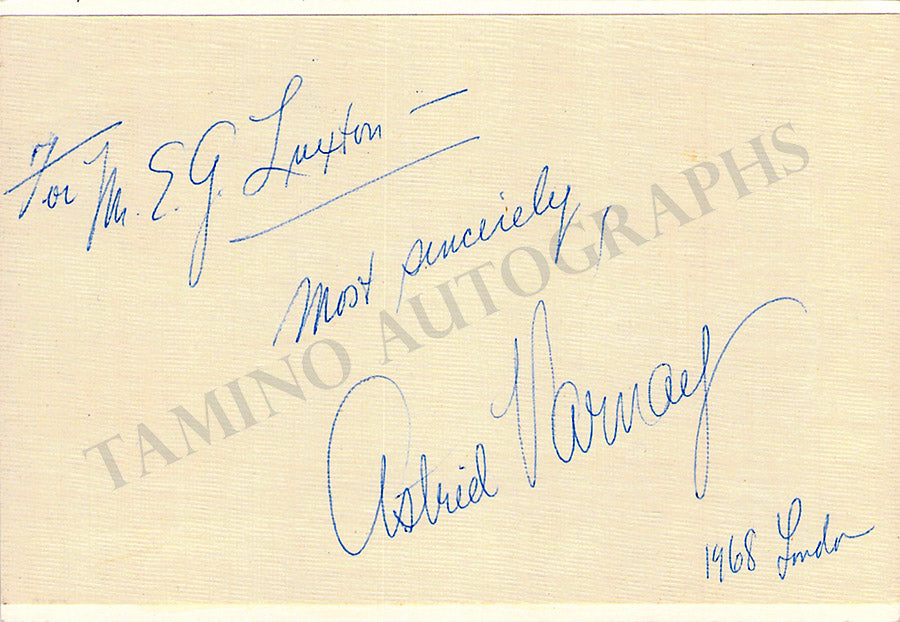 For Mr. E. G. Luxton —
Most sincerely
Astrid Varnay
1968 London
TAMINO AUTOGRAPHS